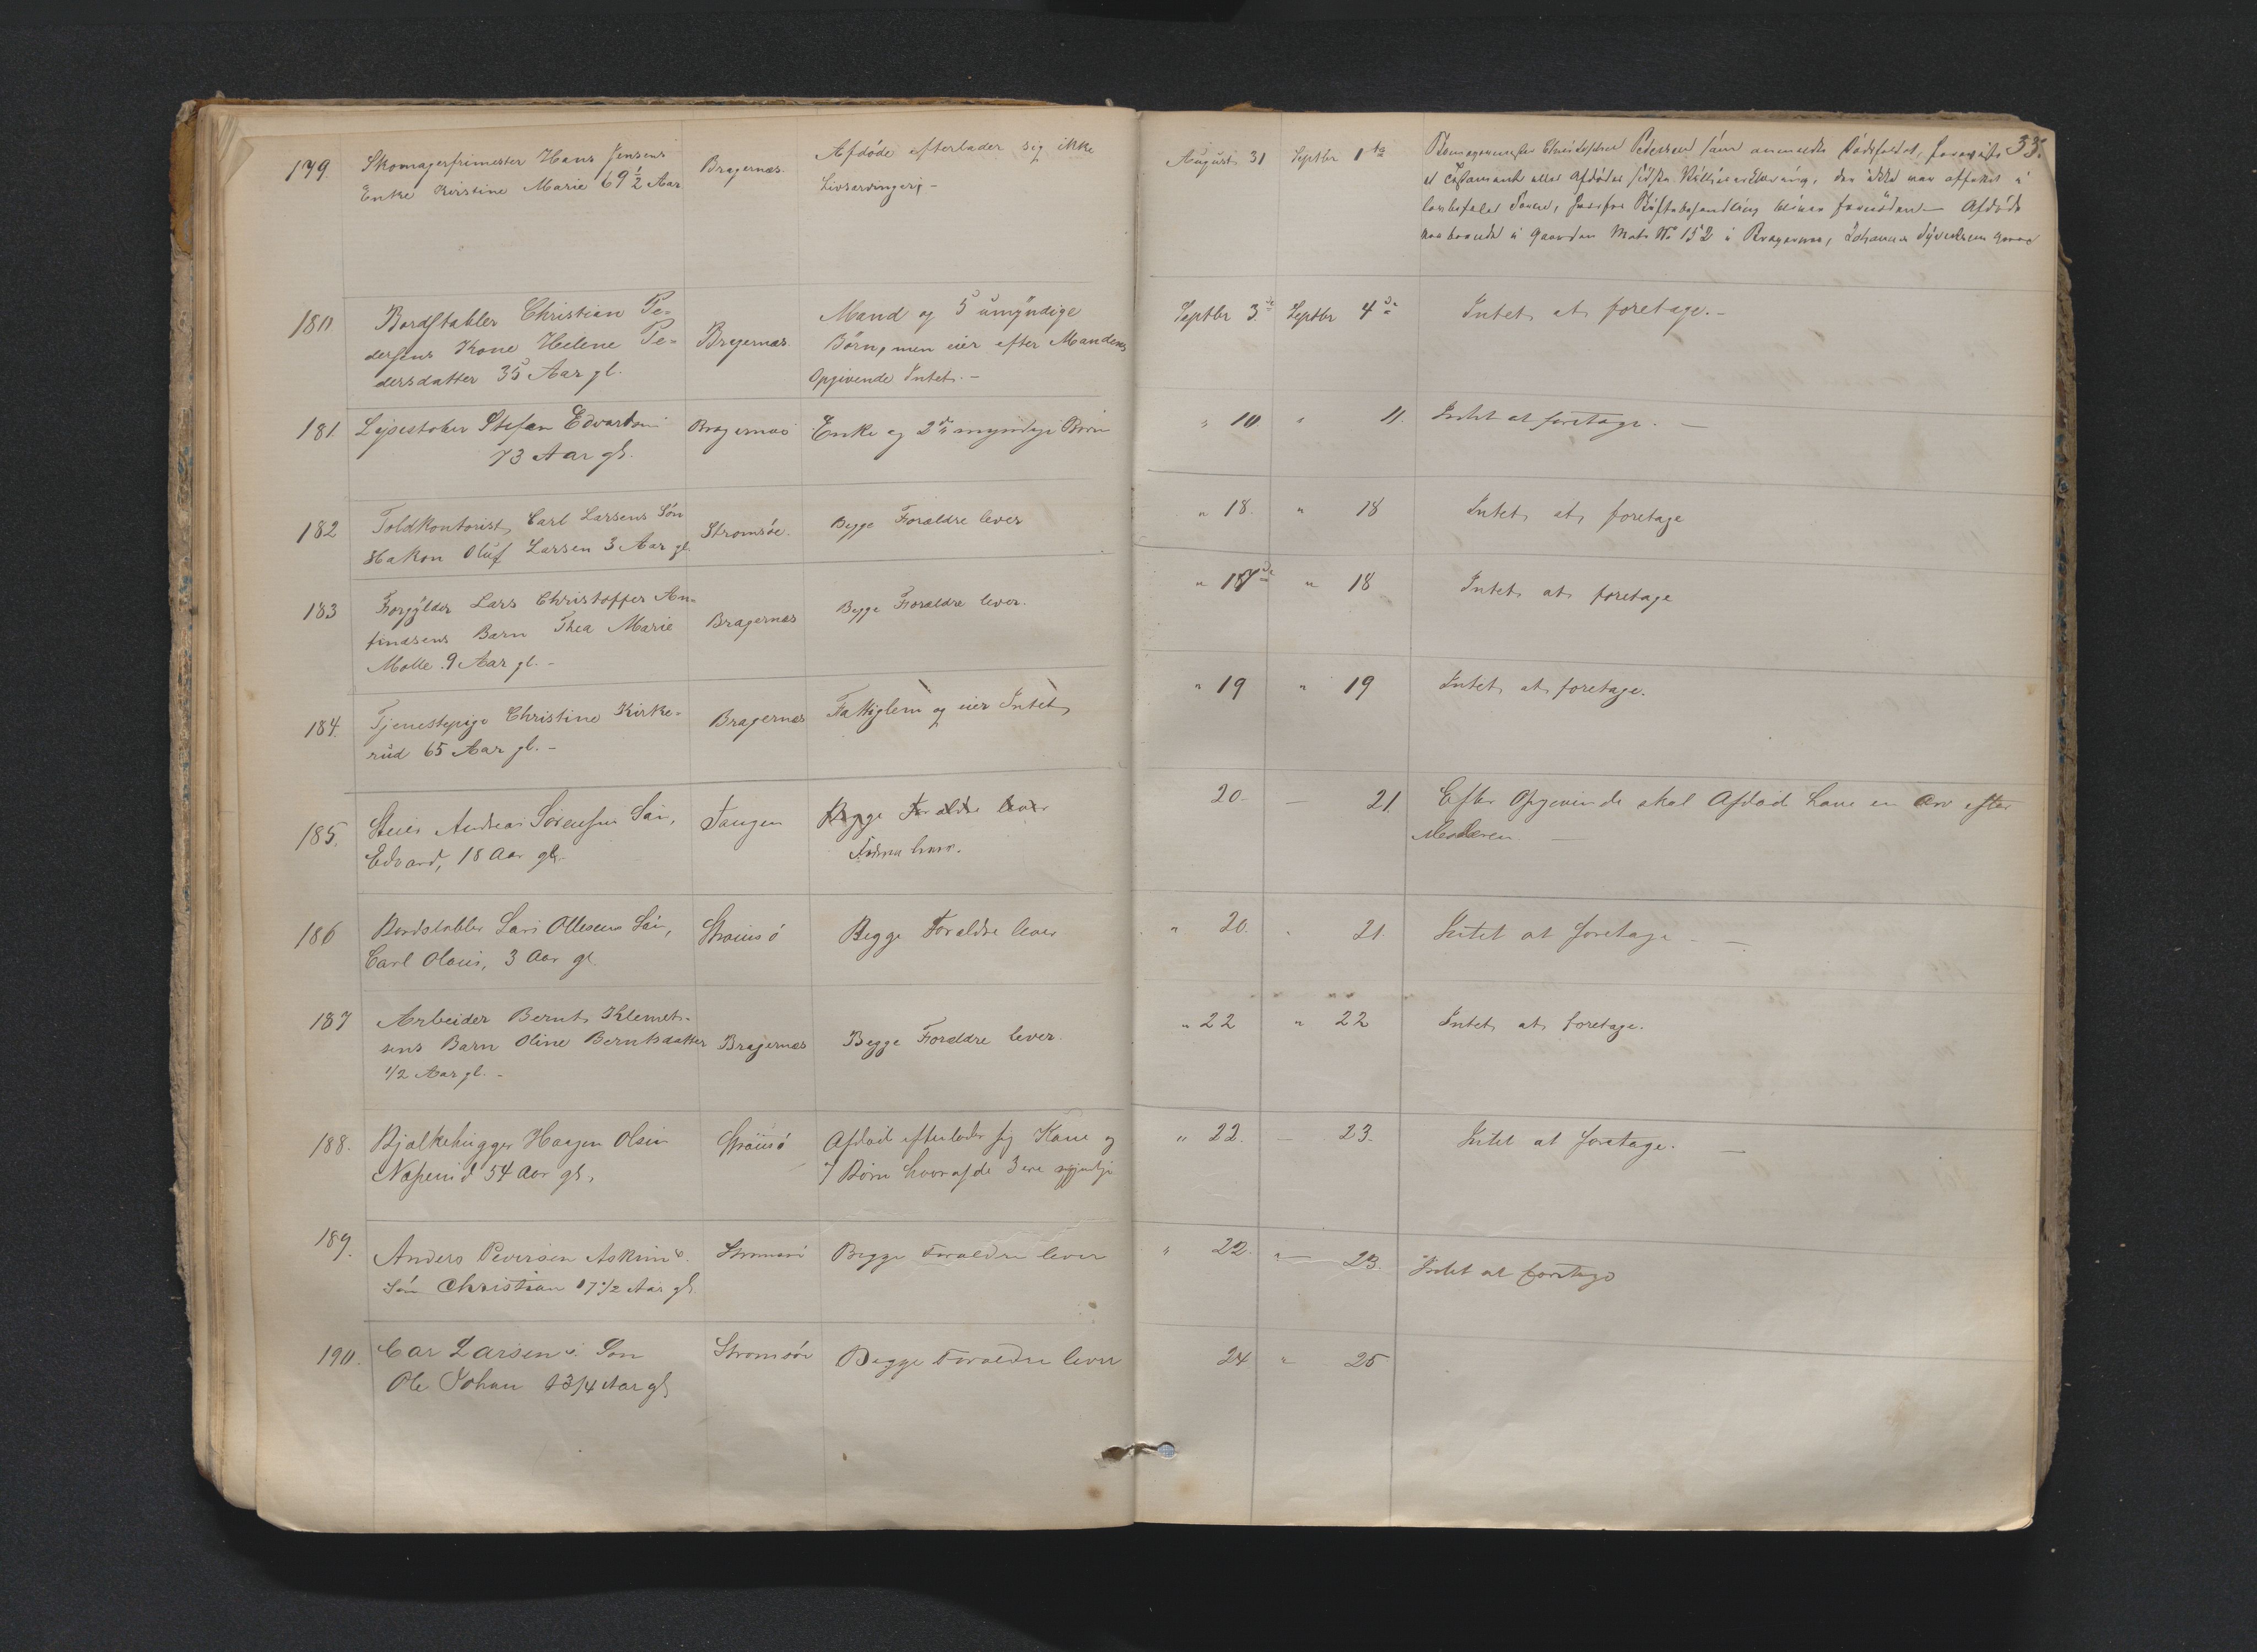 33.
179. Skomagerfrimester Hans Jensens
Enke Kirstine Marie 69 1/2 Aar
Bragernæs.
Afdøde efterlader sig ikke
Livsarvinger, -
August 31 Septbr 1ste
Skomagermester Petersen som anmeldte Dødsfaldet, foreviste
et Testament eller Afdødes sidste Villieserklæring, der ikke var affattet i
lovbefalet Form, hvorfor Skiftebehandling bliver fornøden - Afdøde
boede i Gaarden Matr No 152 i Bragernæs, Johannes
180 Bordstabler Christian Pe-
dersens Kone Helene Pe-
dersdatter 35 Aar gl.
Bragernæs
Mand og 5 umyndige
Børn, men eier efter Mandens
Opgivende Intet. -
Septbr 3de Septbr 4de Intet at foretage. -
181. Stefan Edvardsen
73 Aar gl.
Bragernæs Enke og 2de umyndige Børn
" 10 " 11. Intet at foretage. -
182 Toldkontorist Carl Larsens Søn
Hakon Oluf Larsen 3 Aar gl.
Strømsøe. Begge Forældre lever
" 18. " 18 Intet at foretage
183 Forgylder Lars Christoffer An-
finnsens Barn Thea Marie
Molle 9 Aar gl. -
Bragernæs Begge Forældre lever.
" 17de " 18 Intet at foretage
184. Tjenestepige Christine Kirke-
rud 65 Aar gl. -
Bragernæs Fattiglem og eier Intet
" 19 " 19 Intet at foretage.
185. Andreas Sørensens Søn,
Edvard, 18 Aar gl.
Tangen Begge Forældre lever
20. - 21. Efter Opgivende skal Afdød have en Arv efter
Moderen. -
186 Bordstabler Lars Ollesens Søn,
Carl Olaus, 3 Aar gl.
Strømsø Begge Forældre lever
" 20. " 21. Intet at foretage - -
187 Arbeider Bernt Klemet-
sens Barn Oline Berntsdatter
1/2 Aar gl. -
Bragernæs Begge Forældre lever.
" 22 " 22 Intet at foretage.
188. Bjælkehugger Haagen Olsen
54 Aar gl,
Strømsø Afdød efterlader sig Kone og
7 Børn hvoraf de 3 ere myndige
" 22. - 23. Intet at foretage. -
189. Anders Pedersen Askim s.
Søn Christian 17 1/2 Aar gl.
Strømsø Begge Forældre lever
" 22. " - 23. Intet at foretage
190. Car Larsen s. Søn
Ole Johan 3/4 Aar gl
Strømsøe Begge Forældre lever
24 " 25